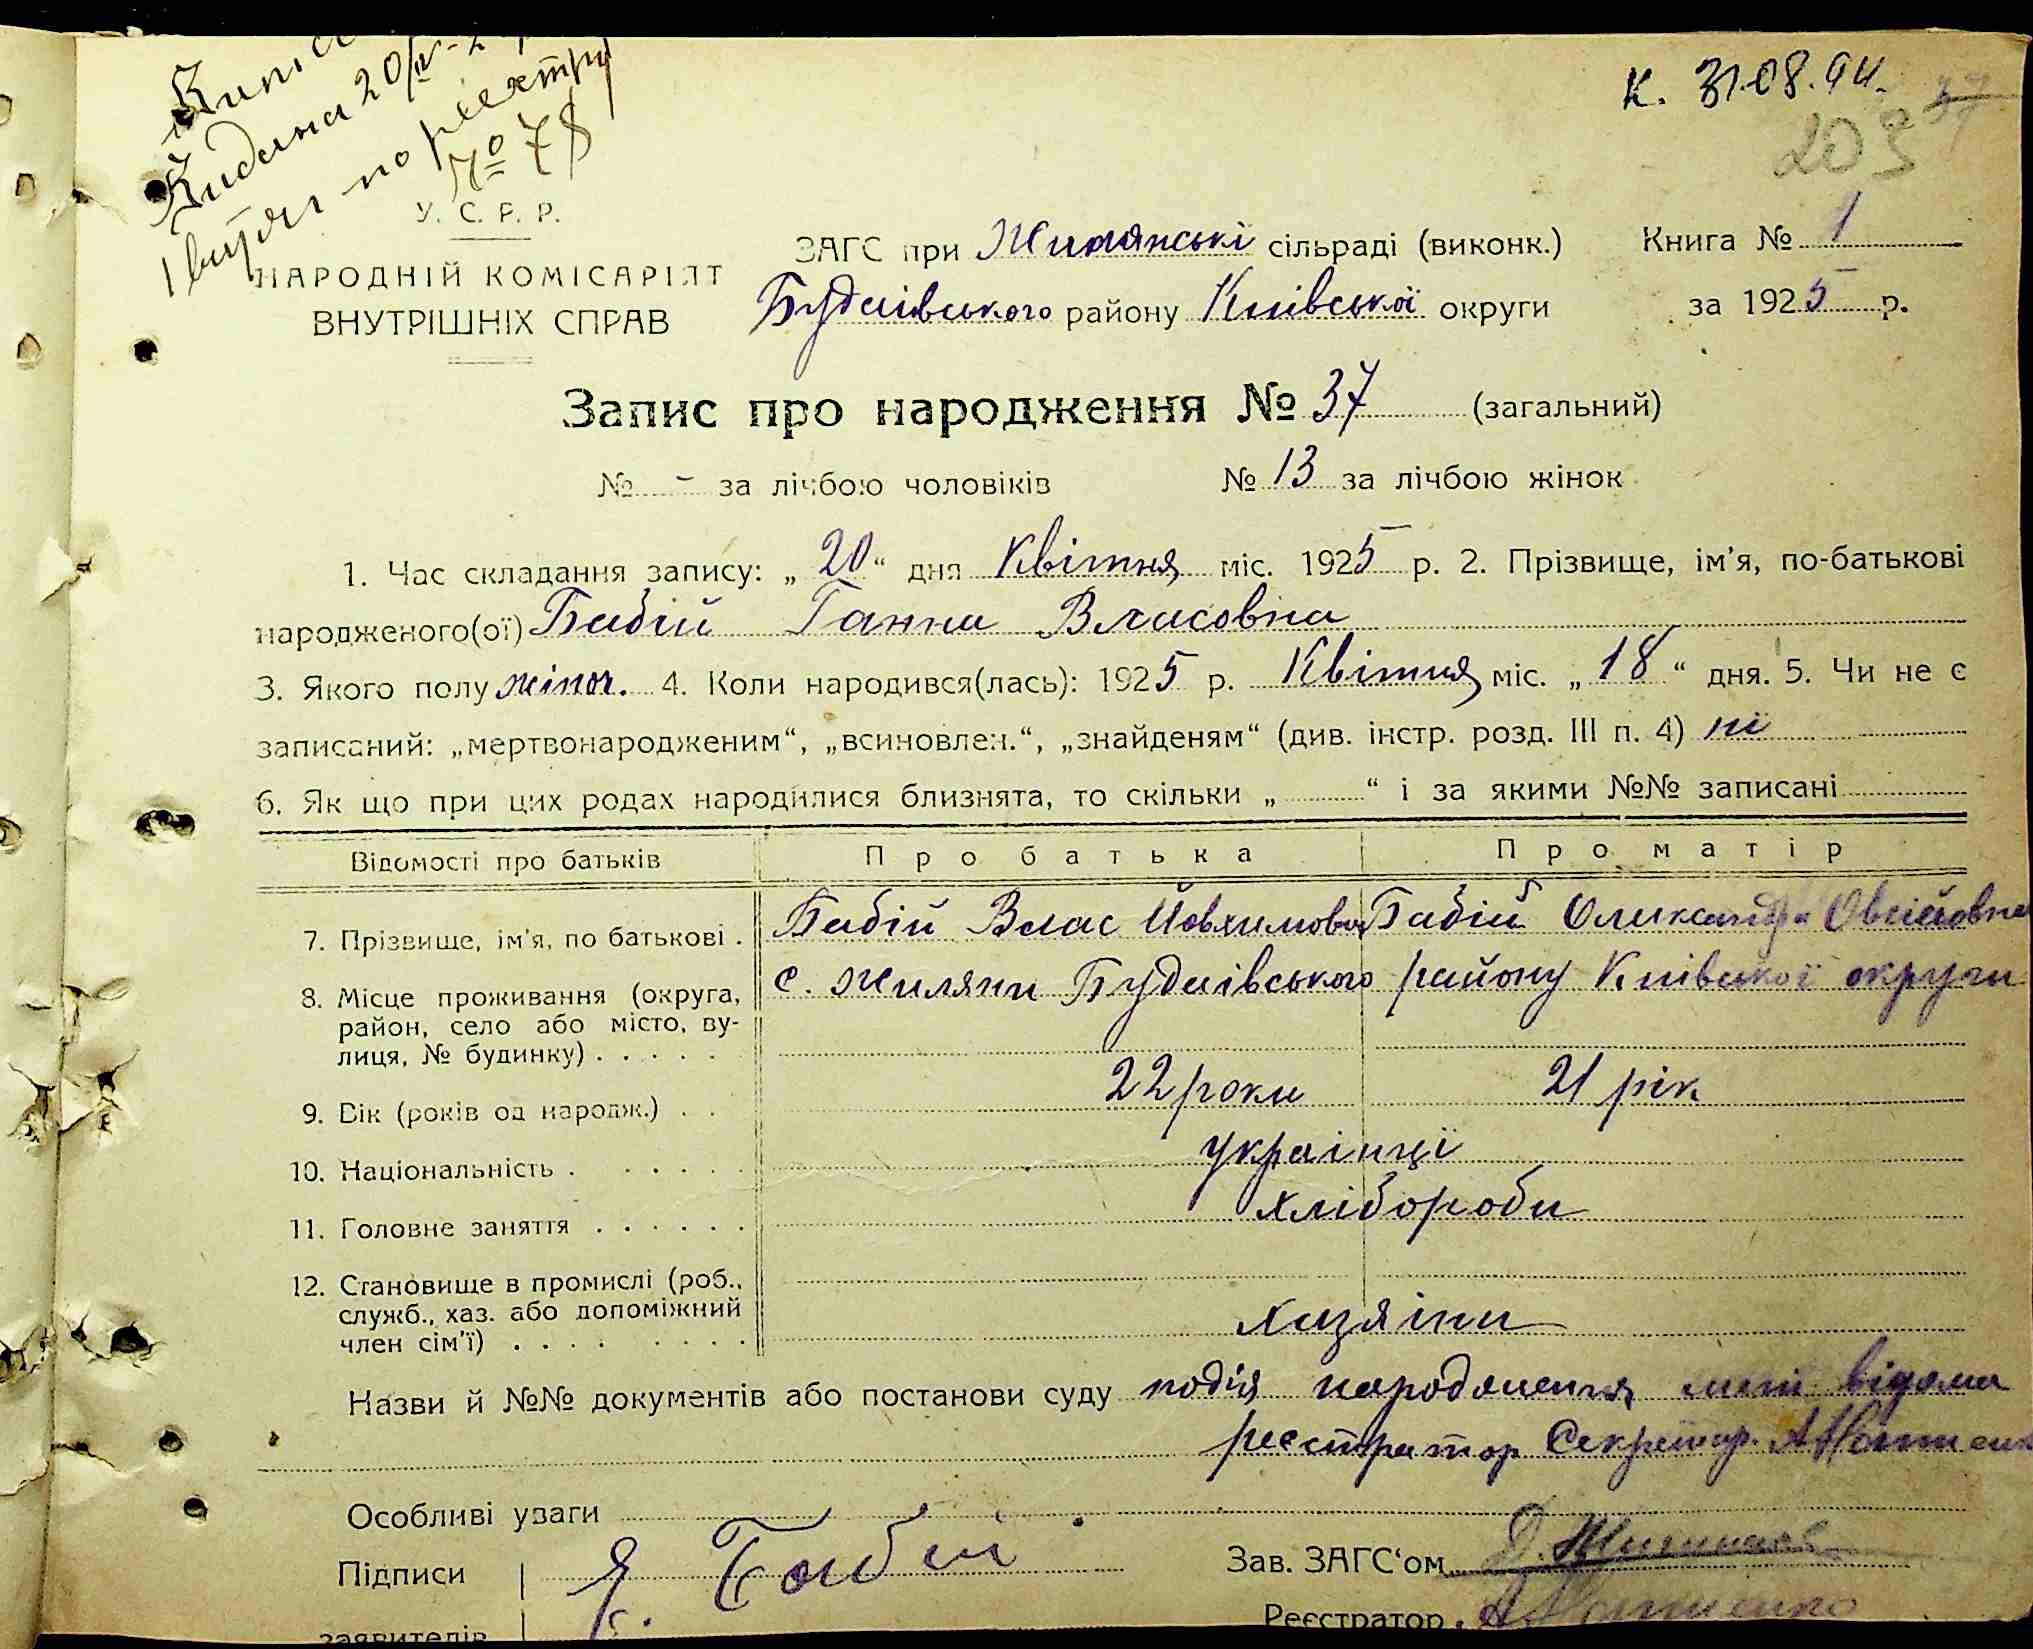 Видана 20/IV-2
1 витяг по реєстру
№ 78
К. 31.08.94.
37
203
У. С. Р. Р.
НАРОДНІЙ КОМІСАРІЯТ
ВНУТРІШНІХ СПРАВ
ЗАГС при Жилянські сільраді (виконк.) Книга № 1
Будаівського району Київської округи за 1925 р.
Запис про народження № 37 (загальний)
№ - за лічбою чоловіків № 13 за лічбою жінок
1. Час складання запису: „20“ дня Квітня міс. 1925 р. 2. Прізвище, ім'я, по-батькові
народженого(ої) Бабій Ганна Власовна
3. Якого полу жіноч. 4. Коли народився(лась): 1925 р. Квітня міс. „18“ дня. 5. Чи не є
записаний: „мертвонародженим“, „всиновлен.“, „знайденям“ (див. інстр. розд. III п. 4) ні
6. Як що при цих родах народилися близнята, то скільки „ “ і за якими №№ записані
Відомості про батьків Про батька Про матір
7. Прізвище, ім'я, по батькові . Бабій Влас Йовхимович Бабій Олександра Овсійовна
8. Місце проживання (округа, с. Жиляни Будаівського району Київської округи
район, село або місто, ву-
лиця, № будинку) . . . . .
9. Вік (років од народж.) . . 22 роки 21 рік
10. Національність . . . . . . українці
11. Головне заняття . . . . . . хлібороби
12. Становище в промислі (роб.,
служб., хаз. або допоміжний
член сім'ї) . . . . . . . . хазяїни
Назви й №№ документів або постанови суду подія народження мені відома
реєстратор Секретар.
Особливі уваги
Підписи Бабій Зав. ЗАГС'ом
заявителів Реєстратор